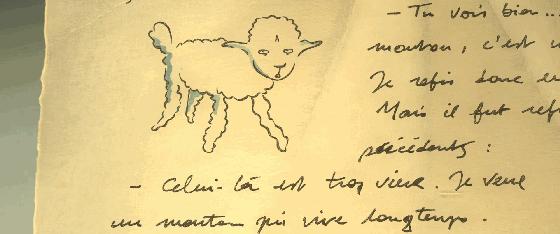 – Tu vois bien...
mouton, c'est u
Je refis donc en
Mais il fut ref
précédents :
– Celui-là est trop vieux. Je veux
un mouton qui vive longtemps.